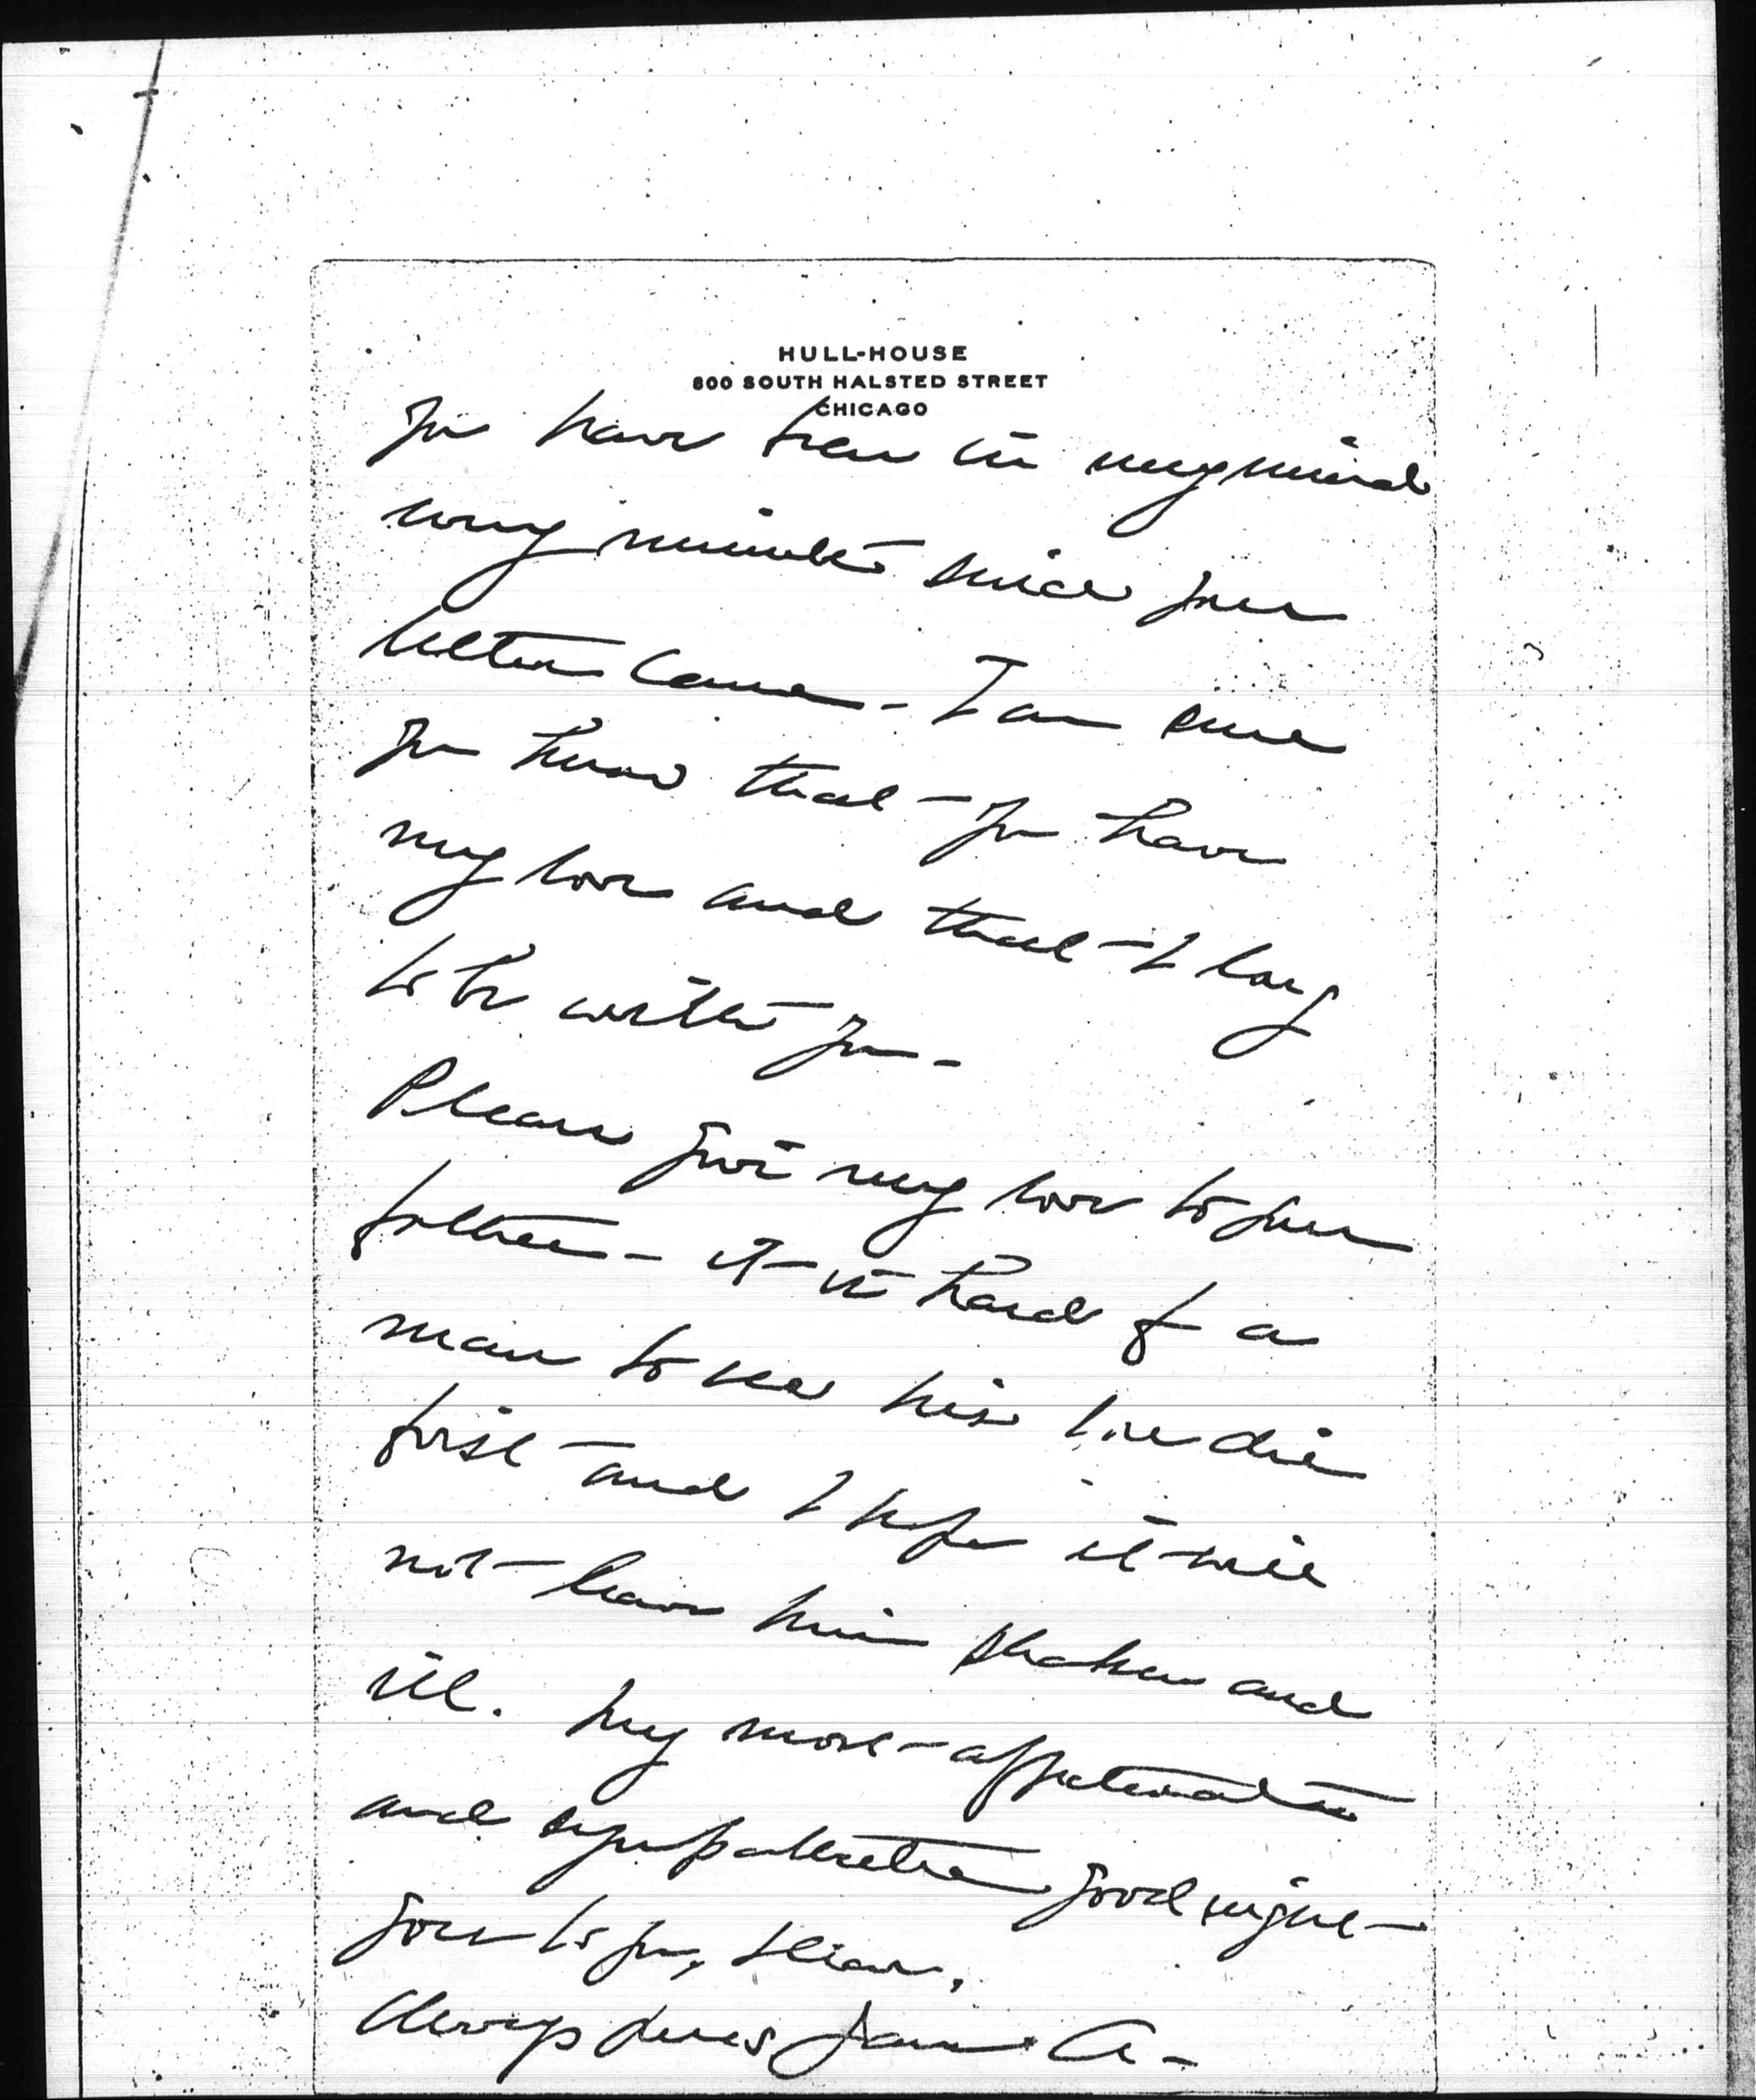 HULL-HOUSE
800 SOUTH HALSTED STREET
CHICAGO
You have been in my mind
every minute since your
letter came - I am sure
you know that you have
my love and that I long
to be with you -
Please give my love to your
father - it is hard for a
man to see his line die
first and I hope it will
not leave him shaken and
ill. My most affectionate
and sympathetic good night
goes to you, dear,
Always yours Jane A -